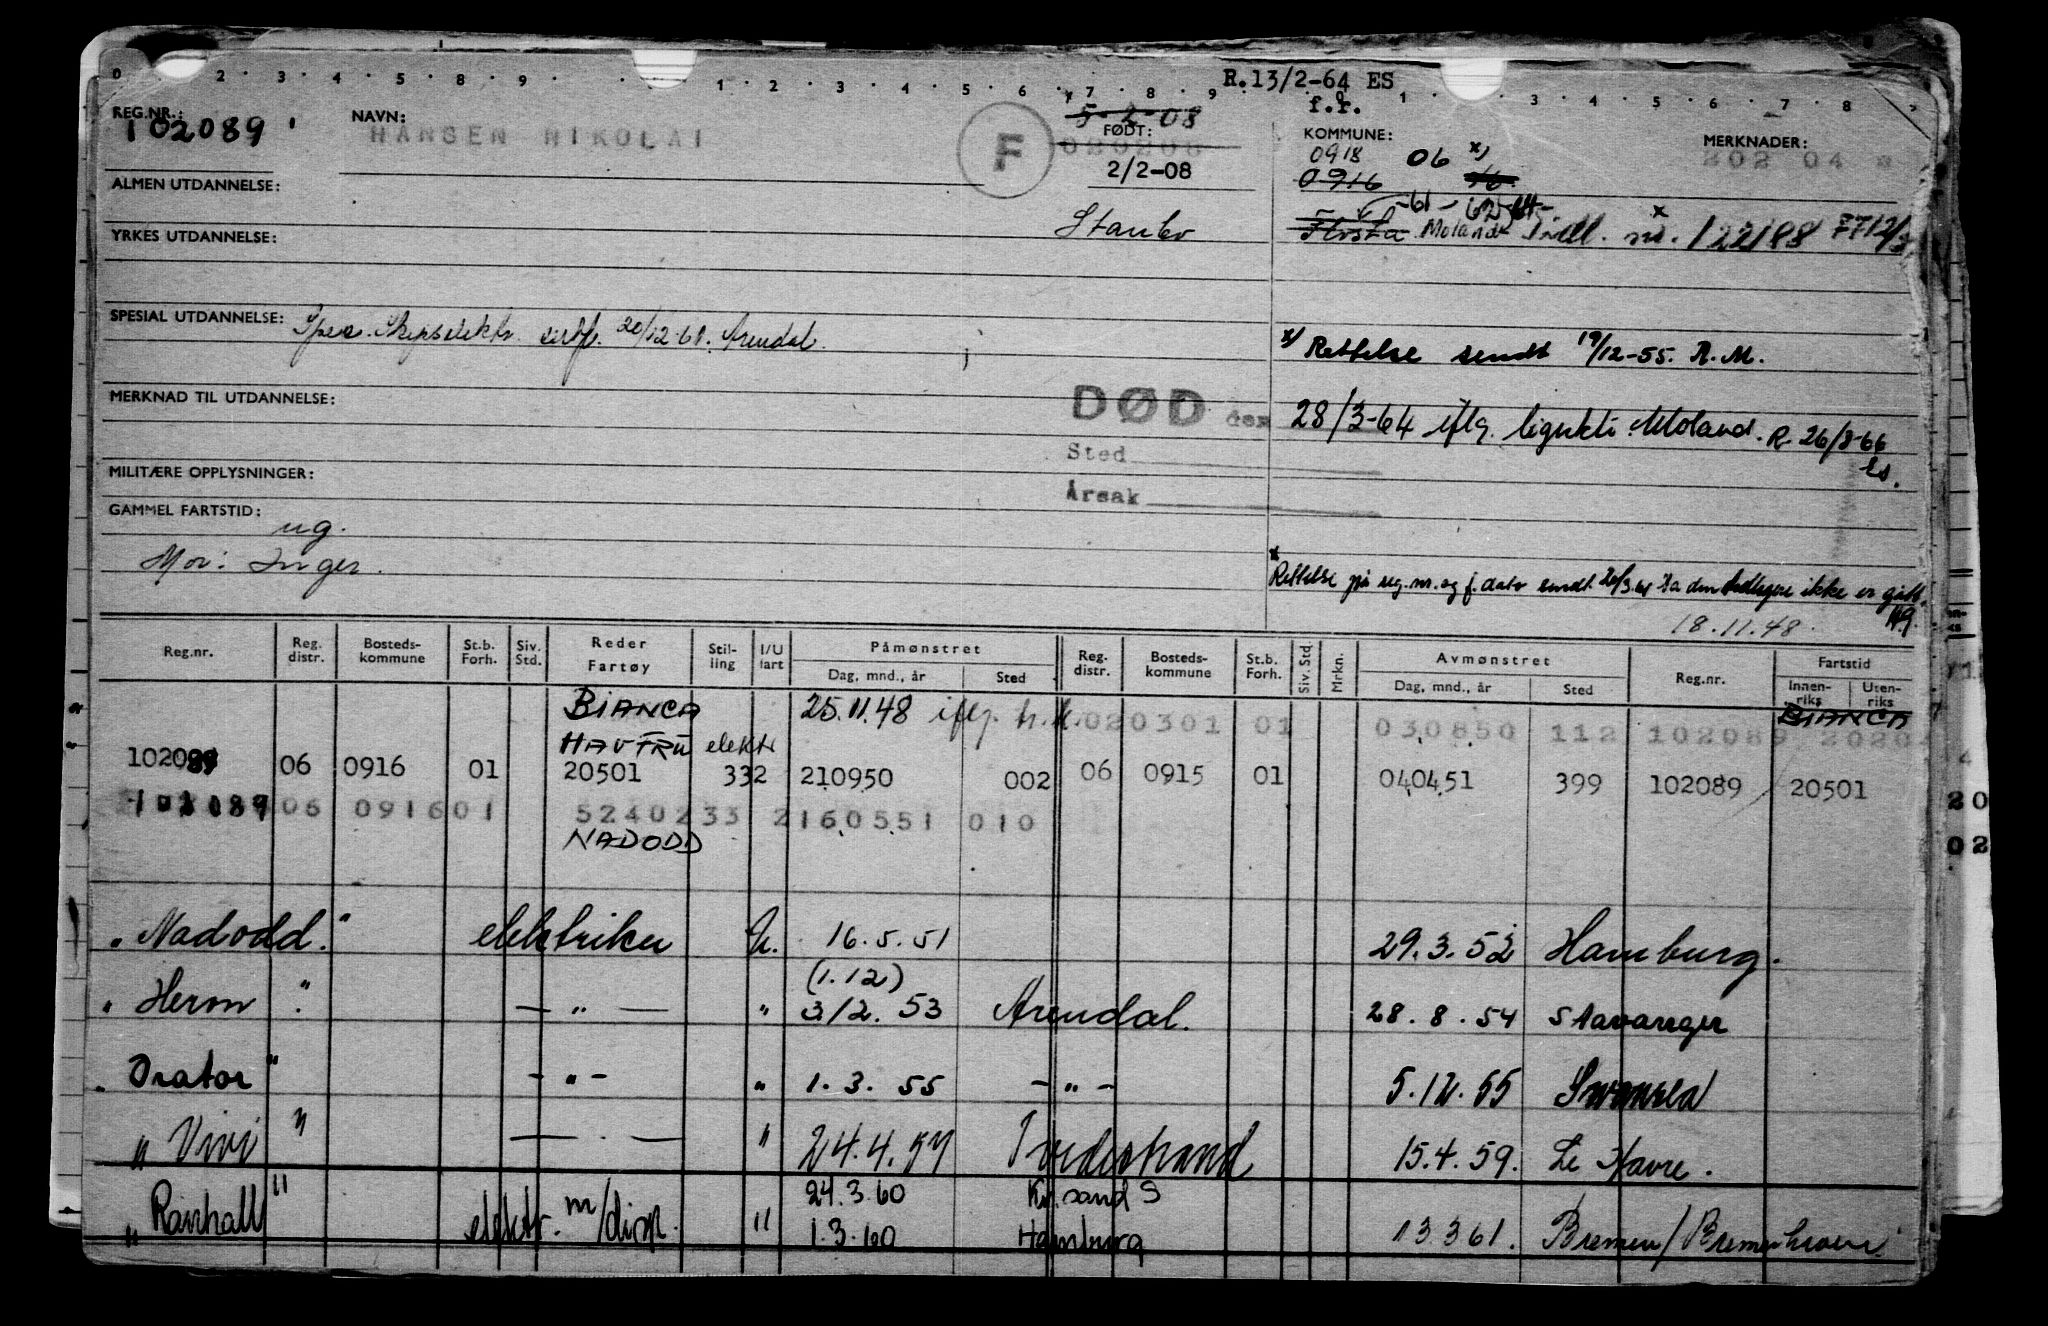 R.13/2-64 ES
f.r.
REG.NR.: 102089
NAVN: HANSEN NIKOLAI
F
5-2-08
FØDT:
2/2-08
KOMMUNE:
0918 06 x)
0916
MERKNADER:
202 04
ALMEN UTDANNELSE:
-61-
Flosta Moland Indl. nr. 122188
YRKES UTDANNELSE:
SPESIAL UTDANNELSE: Spes. Skipselektr. sertf. 20/12-61. Arendal.
x) Rettelse sendt 19/12-55. R.M.
MERKNAD TIL UTDANNELSE:
DØD den 28/3-64 iflg. Moland. R. 26/8-66
Es.
Sted
MILITÆRE OPPLYSNINGER:
Årsak
GAMMEL FARTSTID:
ug.
Mor: Inger.
x Rettelse på reg.nr. og f. dato sendt 20/3.61 da den tidligere ikke er gitt.
HG.
18.11.48.
Reg.nr. Reg. distr. Bosteds-kommune St.b. Forh. Siv. Std. Reder Fartøy Stil-ling I/U fart Påmønstret Dag, mnd., år Sted Reg. distr. Bosteds-kommune St.b. Forh. Siv. Std Mrkn. Avmønstret Dag, mnd., år Sted Reg.nr. Fartstid Innen-riks Uten-riks
BIANCA 25.11.48 iflg. h.k. 020301 01 030850 112 102089 BIANCA
HAVFRU elektr
102089 06 0916 01 20501 332 210950 002 06 0915 01 040451 399 102089 20501
102089 06 0916 01 52402 33 2 160551 010
NADODD
"Nadodd." elektriker U. 16.5.51 29.3.52 Hamburg.
(1.12)
"Herm". — " — " 3/2.53 Arendal. 28.8.54 Stavanger
"Orator" - " - " 1.3.55 - " - 5.12.55 Swansea
"Vivi" — . — " 24.4.57 Tvedestrand 15.4.59. Le Havre.
24.3.60 Kr.sand S
"Ranhall" elektr. m/disp. " 1.3.60 Hamburg 13.3.61. Bremen/Bremerhaven.